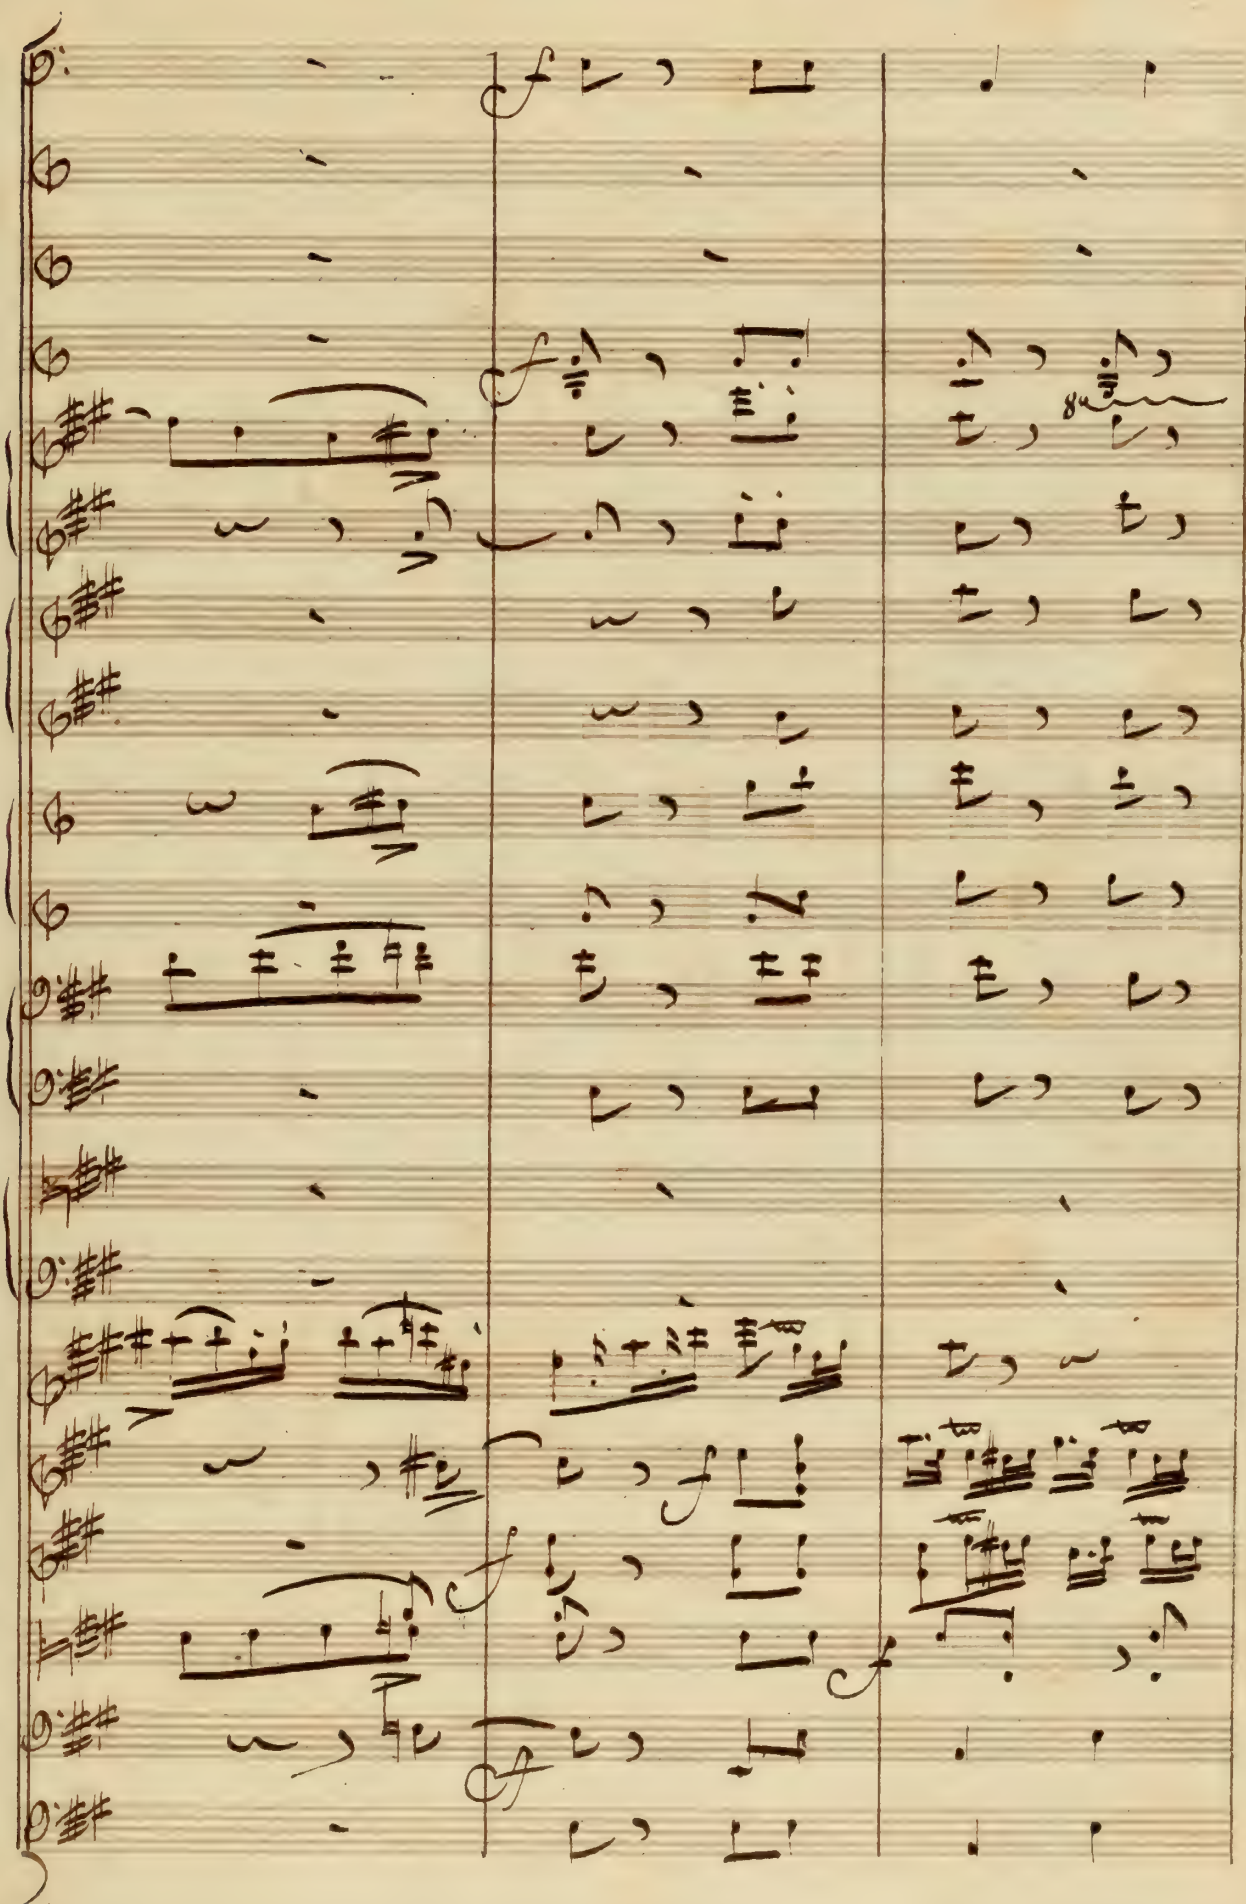 f
f
8a
f
f
f
f